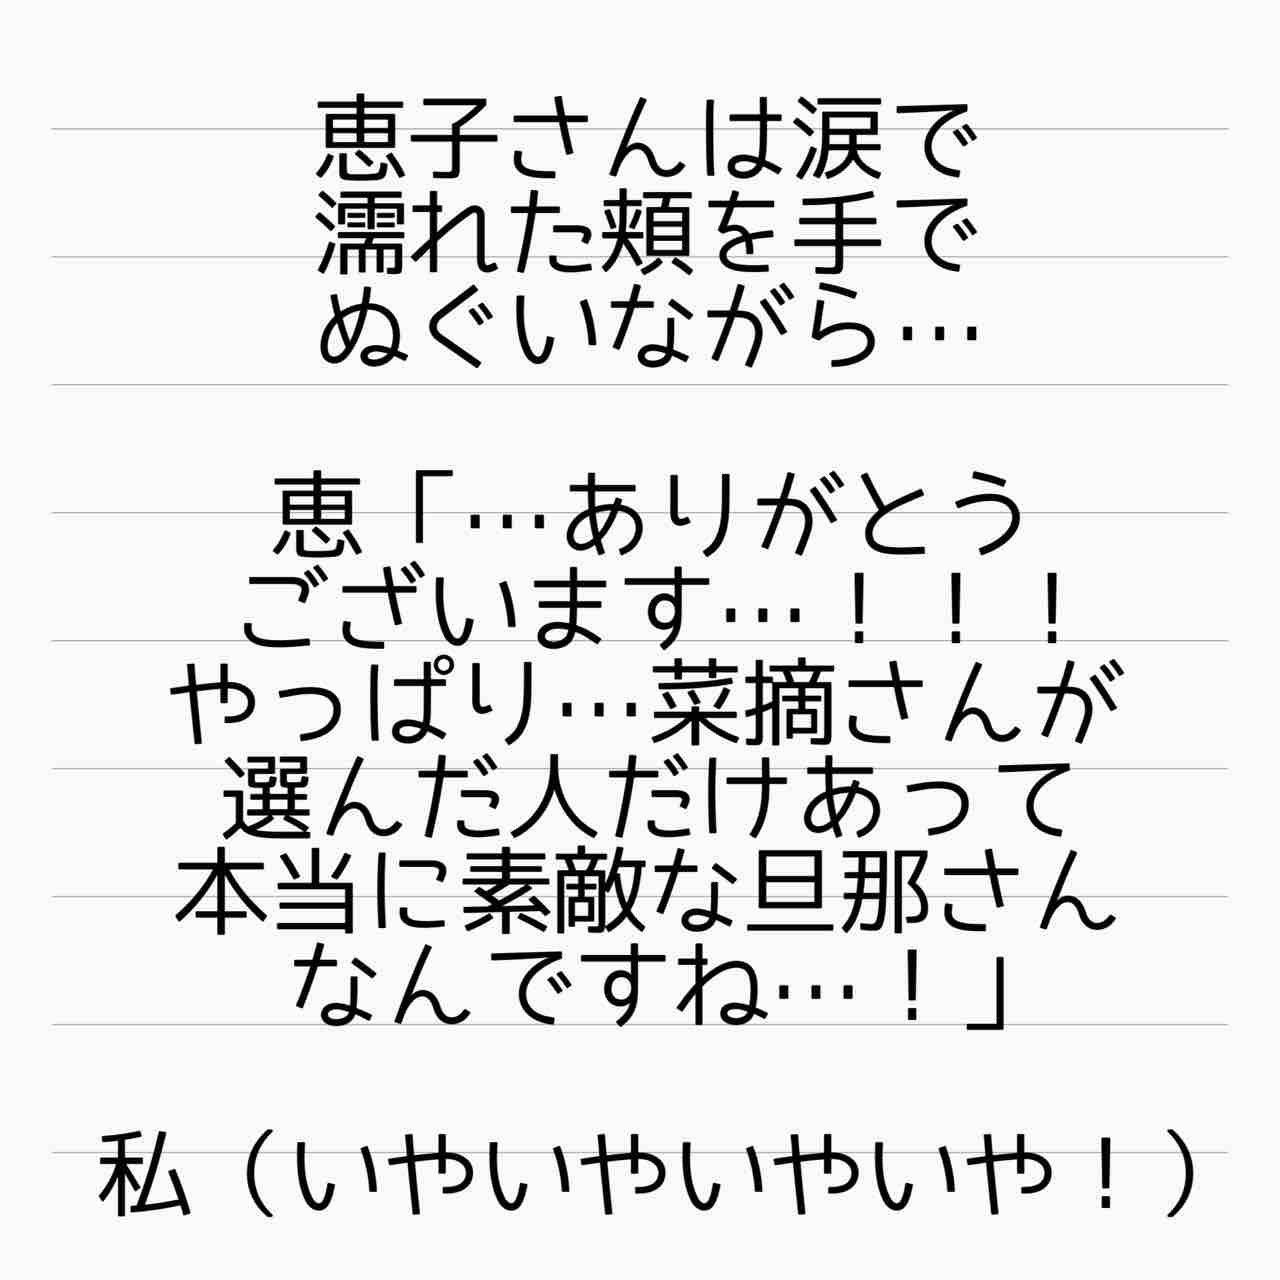 恵子さんは涙で
濡れた頬を手で
ぬぐいながら…
恵「…ありがとう
ございます…！！！
やっぱり…菜摘さんが
選んだ人だけあって
本当に素敵な旦那さん
なんですね…！」
私（いやいやいやいや！）